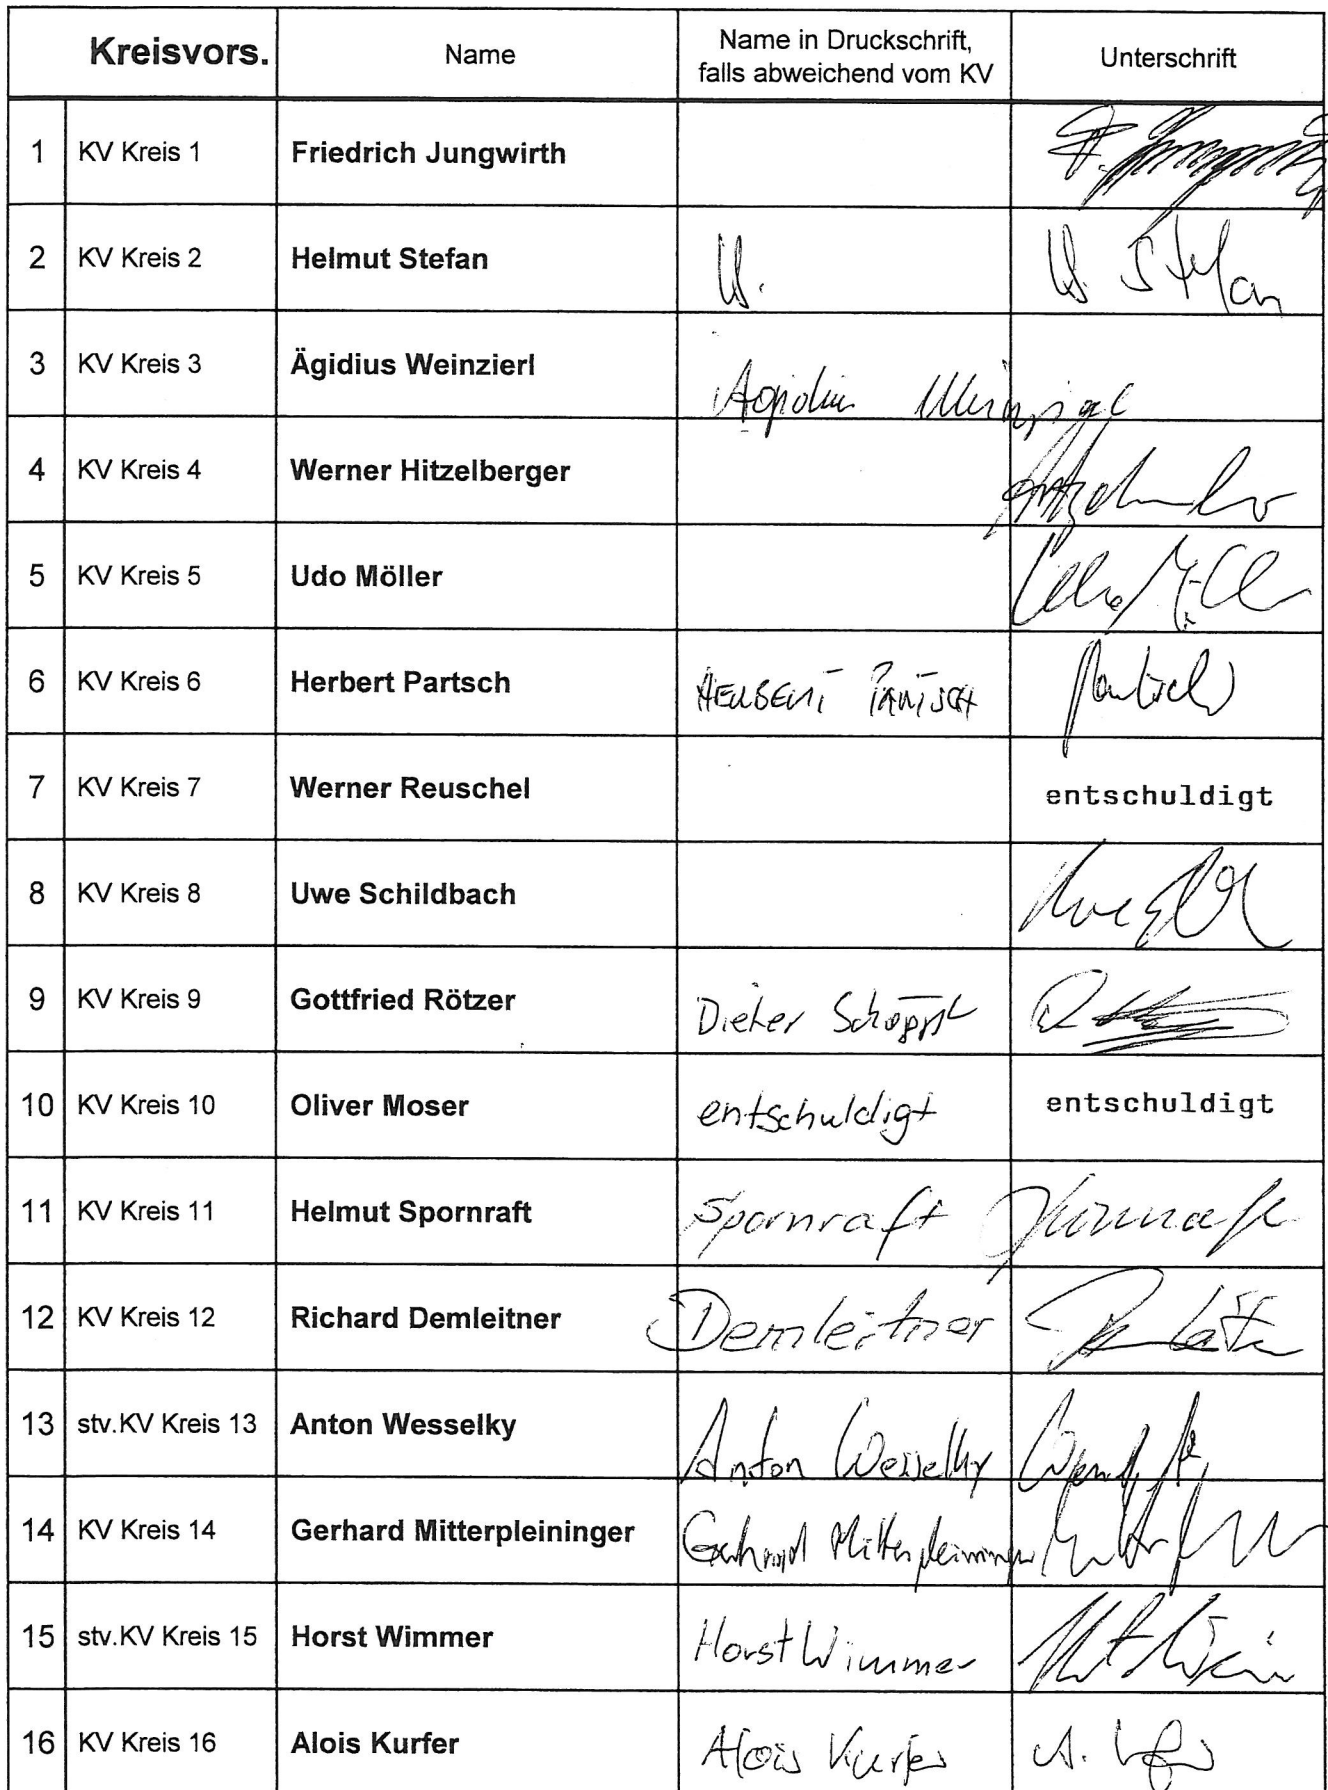 Kreisvors. Name Name in Druckschrift, falls abweichend vom KV Unterschrift
1 KV Kreis 1 Friedrich Jungwirth
2 KV Kreis 2 Helmut Stefan H. H. Stefan
3 KV Kreis 3 Ägidius Weinzierl
4 KV Kreis 4 Werner Hitzelberger
5 KV Kreis 5 Udo Möller
6 KV Kreis 6 Herbert Partsch HERBERT PARTSCH Partsch
7 KV Kreis 7 Werner Reuschel entschuldigt
8 KV Kreis 8 Uwe Schildbach
9 KV Kreis 9 Gottfried Rötzer Dieter
10 KV Kreis 10 Oliver Moser entschuldigt entschuldigt
11 KV Kreis 11 Helmut Spornraft Spornraft Spornraft
12 KV Kreis 12 Richard Demleitner Demleitner
13 stv.KV Kreis 13 Anton Wesselky Anton Wesselky
14 KV Kreis 14 Gerhard Mitterpleininger Gerhard Mitterpleininger
15 stv.KV Kreis 15 Horst Wimmer Horst Wimmer
16 KV Kreis 16 Alois Kurfer Alois Kurfer